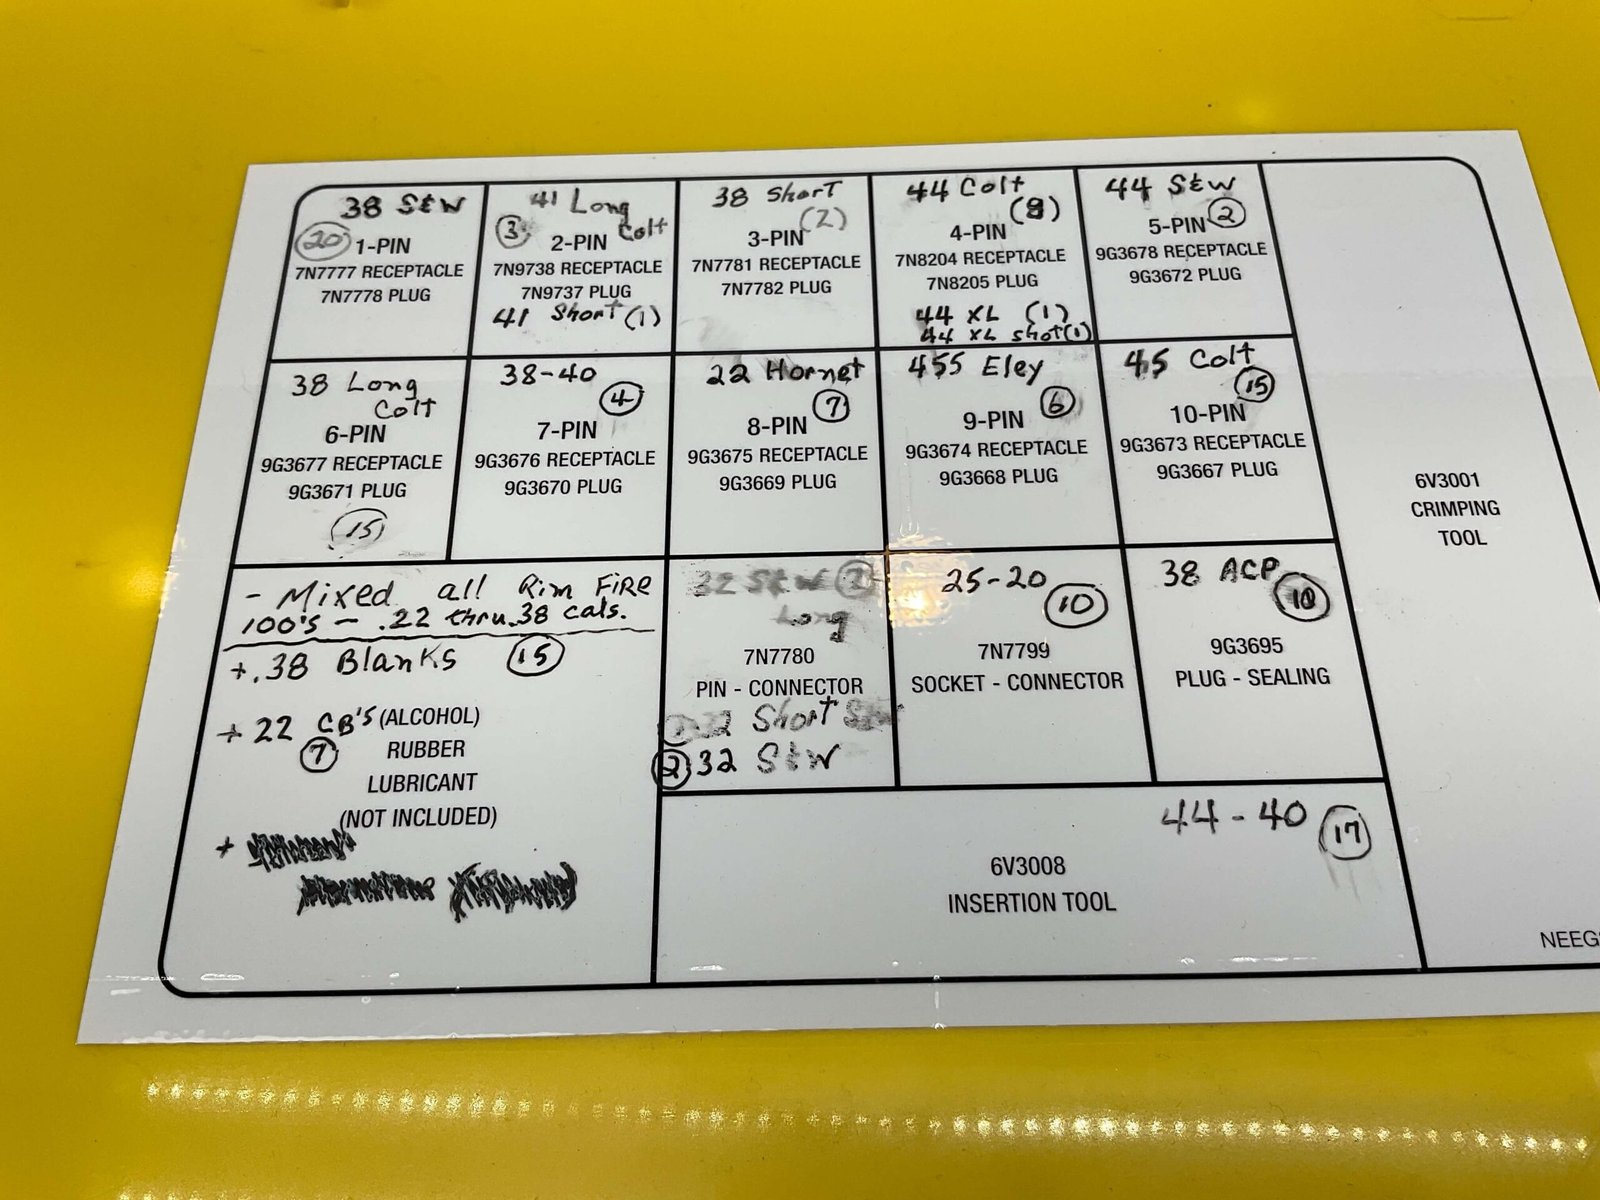 38 S&W
(20) 1-PIN
7N7777 RECEPTACLE
7N7778 PLUG
41 Long
Colt
(3) 2-PIN
7N9738 RECEPTACLE
7N9737 PLUG
41 Short (1)
38 Short
(2)
3-PIN
7N7781 RECEPTACLE
7N7782 PLUG
44 Colt
(8)
4-PIN
7N8204 RECEPTACLE
7N8205 PLUG
44 XL (1)
44 XL shot (1)
44 S&W
5-PIN (2)
9G3678 RECEPTACLE
9G3672 PLUG
6V3001
CRIMPING
TOOL
38 Long
Colt
6-PIN
9G3677 RECEPTACLE
9G3671 PLUG
(15)
38-40
(4)
7-PIN
9G3676 RECEPTACLE
9G3670 PLUG
22 Hornet
(7)
8-PIN
9G3675 RECEPTACLE
9G3669 PLUG
455 Eley
(6)
9-PIN
9G3674 RECEPTACLE
9G3668 PLUG
45 Colt
(15)
10-PIN
9G3673 RECEPTACLE
9G3667 PLUG
- Mixed all Rim Fire
100's - .22 thru .38 cals.
+ .38 Blanks (15)
+ 22 CB's (ALCOHOL)
(7) RUBBER
LUBRICANT
(NOT INCLUDED)
+
32 S&W
Long
7N7780
PIN - CONNECTOR
32 Short
(2) 32 S&W
25-20
(10)
7N7799
SOCKET - CONNECTOR
38 ACP
(10)
9G3695
PLUG - SEALING
44-40 (17)
6V3008
INSERTION TOOL